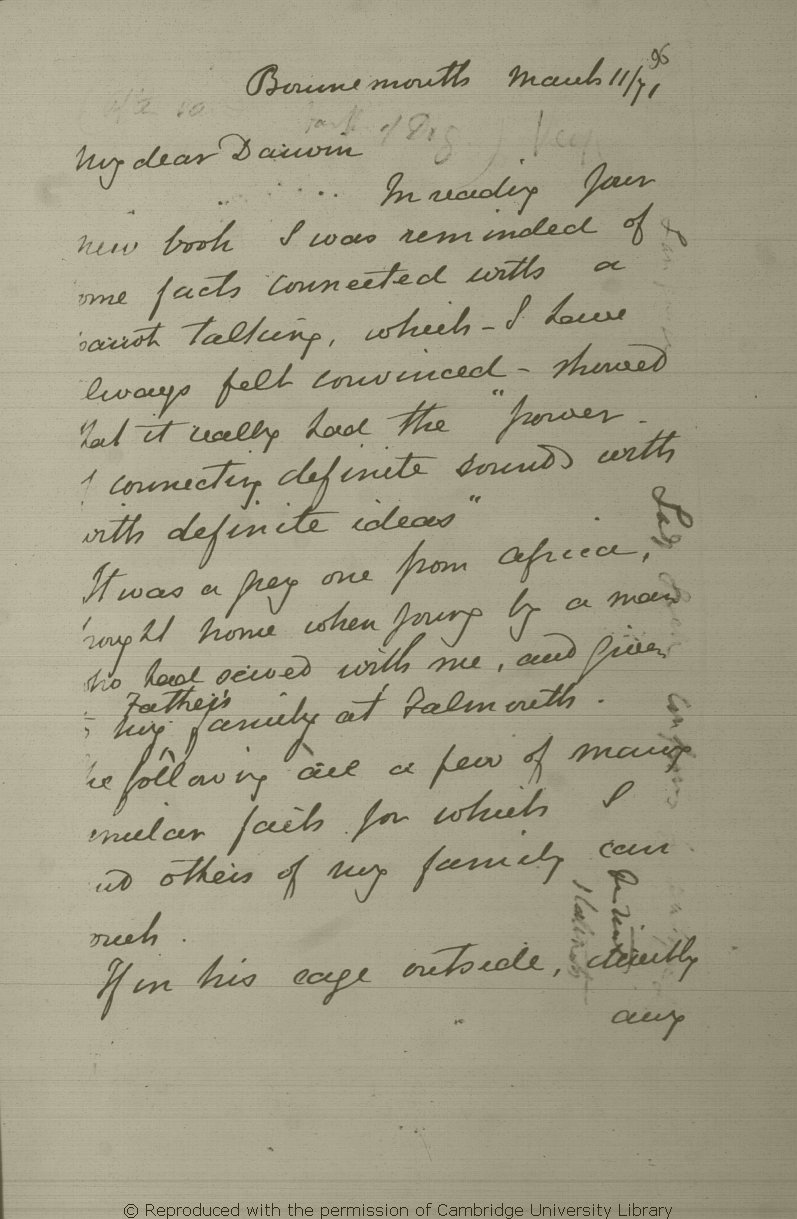 96
Bournemouth March 11/71
My dear Darwin
In reading your
new book I was reminded of
ome facts connected with a
parrot talking, which - I have
lways felt convinced - showed
that it really had the "power
f connecting definite sounds with
with definite ideas"
It was a grey one from Africa,
rought home when young by a man
who had served with me, and given
my Father's family at Falmouth.
he following are a few of many
imilar facts for which I
and others of my family can
ouch.
If in his cage outside, directly
any
© Reproduced with the permission of Cambridge University Library